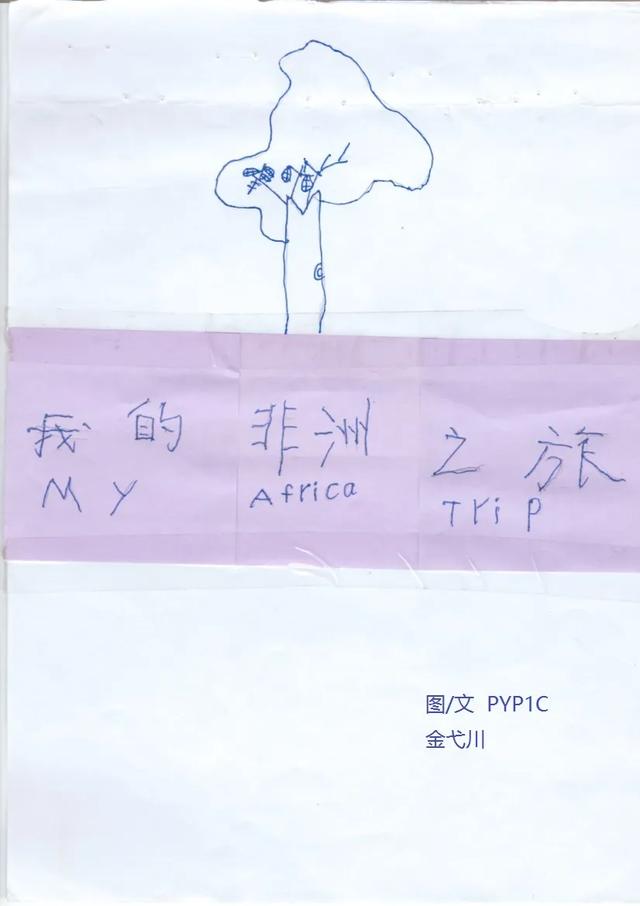 我的非洲之旅
My Africa Trip
图/文 PYP1C
金弋川